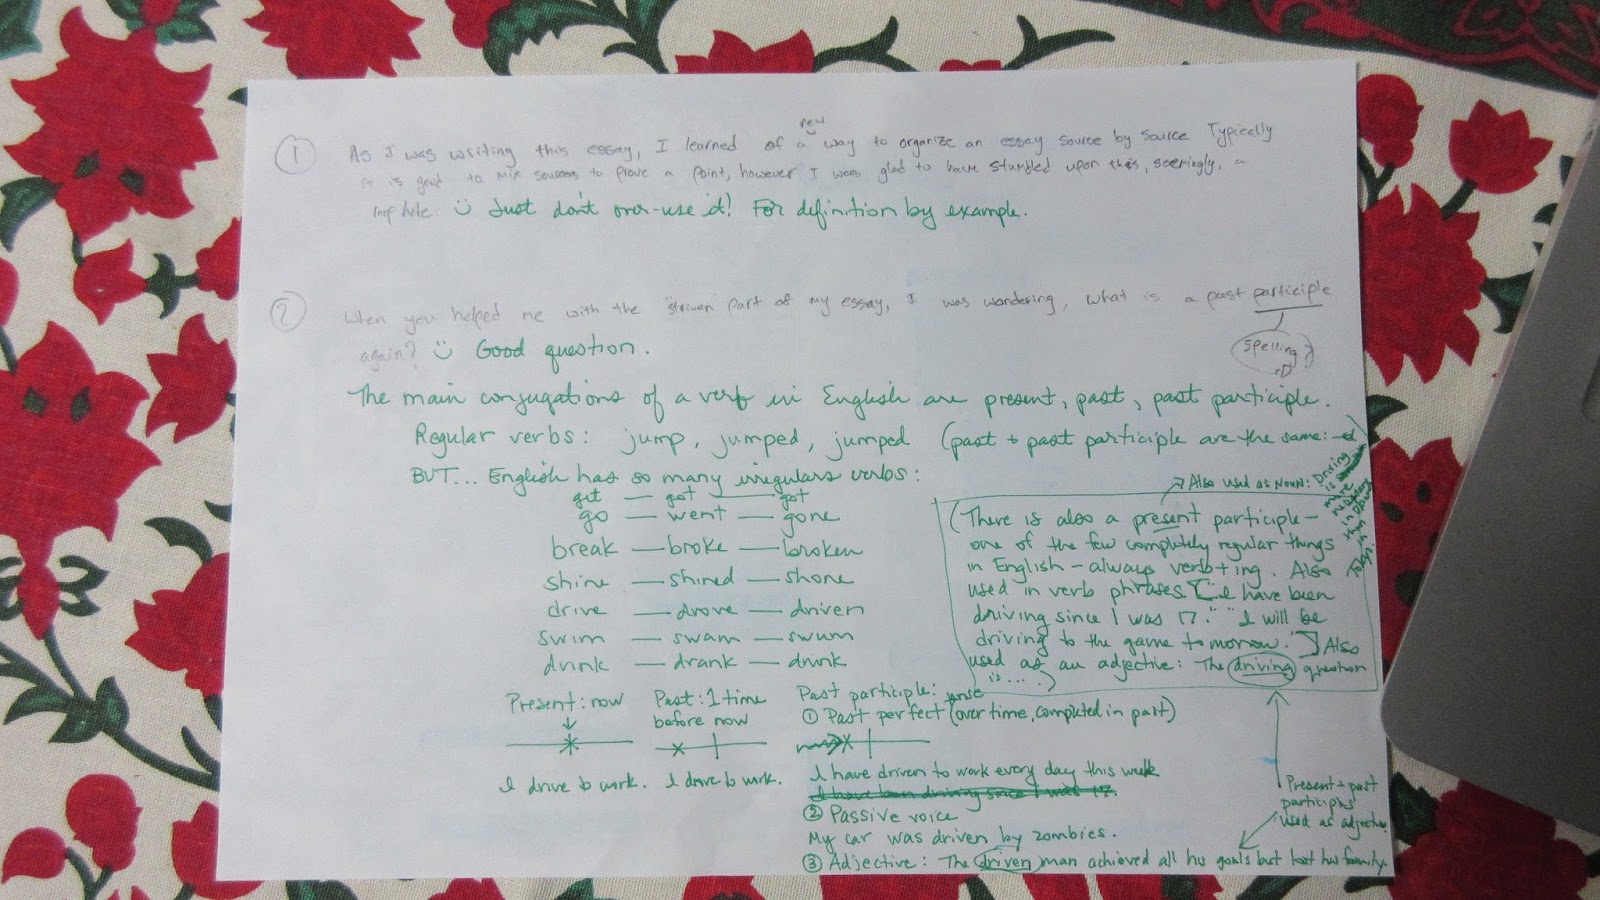 1
new
As I was writing this essay, I learned of a way to organize an essay source by source Typically
it is good to mix sources to prove a point, however I was glad to have stumbled upon this, seemingly, a
loop hole. Just don't over-use it! For definition by example.
2
When you helped me with the "striven" part of my essay, I was wondering, what is a past participle
again? Good question.
spelling?
The main conjugations of a verb in English are present, past, past participle.
Regular verbs: jump, jumped, jumped (past + past participle are the same: -ed)
BUT... English has so many irregulars verbs:
get — got — got
go — went — gone
break — broke — broken
shine — shined — shone
drive — drove — driven
swim — swam — swum
drink — drank — drunk
Also used as noun: Driving
is
more
in
than in
(There is also a present participle -
one of the few completely regular things
in English - always verb+ing. Also
used in verb phrases ["I have been
driving since I was 17." "I will be
driving to the game tomorrow."] Also
used as an adjective: The driving question
is ... .)
Present: now
I drive to work.
Past: 1 time
before now
I drove to work.
Past participle: used
① Past perfect (over time, completed in past)
I have driven to work every day this week
I have been driving since I was 17.
② Passive voice
My car was driven by zombies.
③ Adjective: The driven man achieved all his goals but lost his family.
Present + past
participles
used as adjective